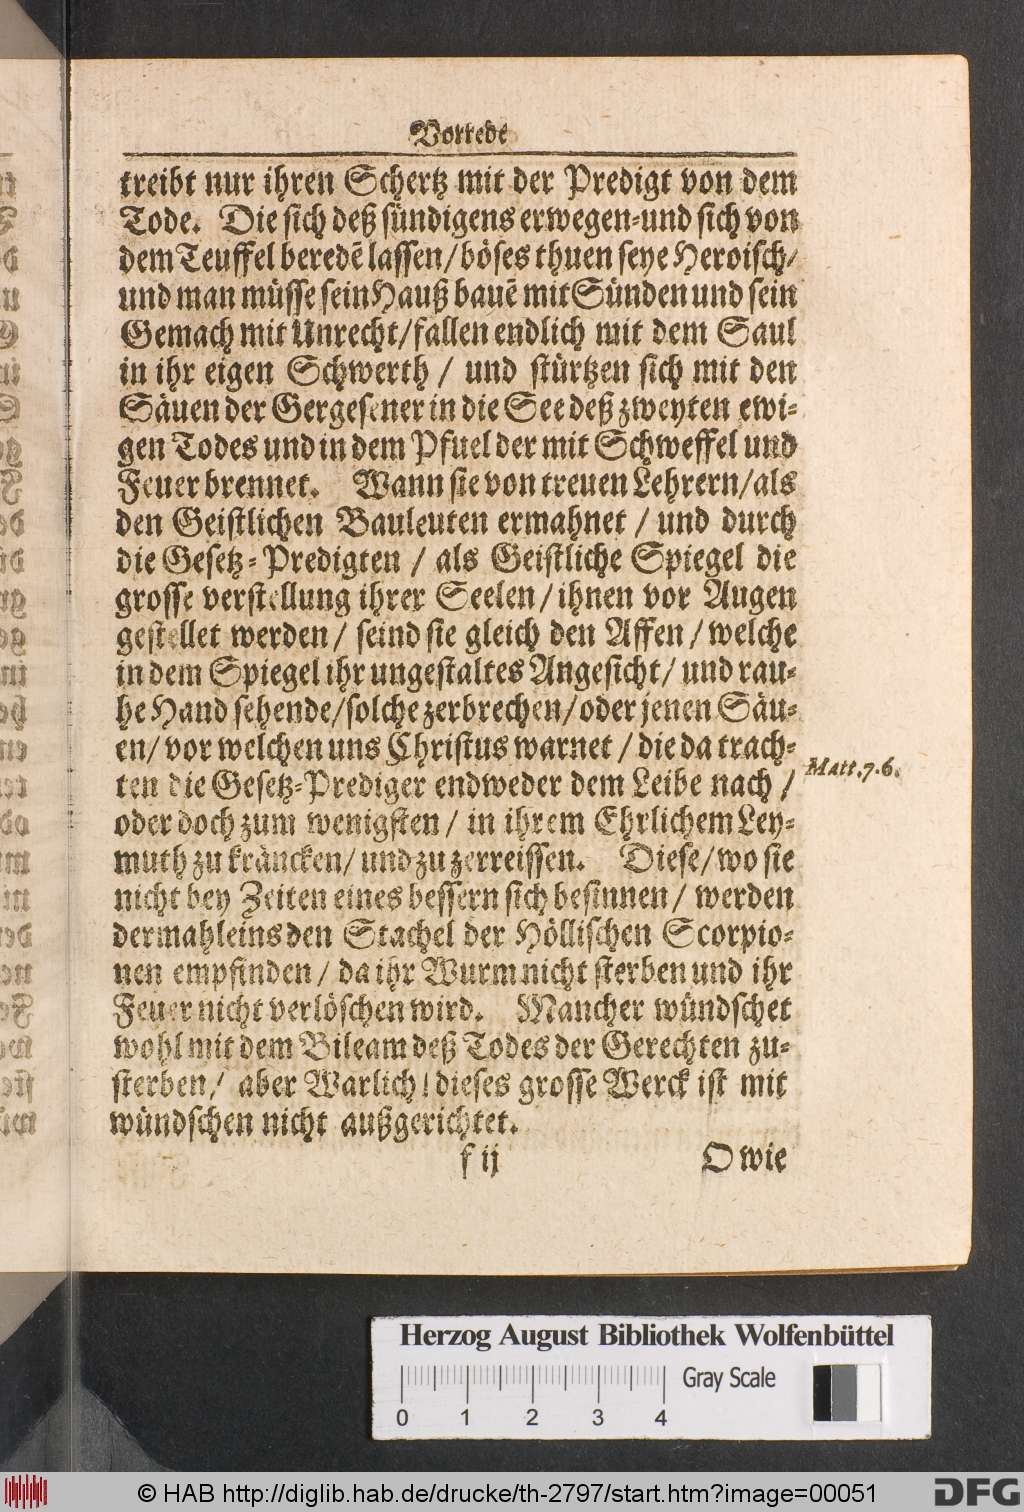 Vorrede
treibt nur ihren Schertz mit der Predigt von dem
Tode. Die sich deß sündigens erwegen-und sich von
dem Teuffel beredẽ lassen/böses thuen seye Heroisch/
und man müsse sein Hauß bauẽ mit Sünden und sein
Gemach mit Unrecht/fallen endlich mit dem Saul
in ihr eigen Schwerth / und stürtzen sich mit den
Säuen der Gergesener in die See deß zweyten ewi-
gen Todes und in dem Pfuel der mit Schweffel und
Feuer brennet. Wann sie von treuen Lehrern/als
den Geistlichen Bauleuten ermahnet / und durch
die Gesetz-Predigten / als Geistliche Spiegel die
grosse verstellung ihrer Seelen/ihnen vor Augen
gestellet werden/ seind sie gleich den Affen/welche
in dem Spiegel ihr ungestaltes Angesicht/ und rau-
he Hand sehende/solche zerbrechen/oder jenen Säu-
en/ vor welchen uns Christus warnet / die da trach-
ten die Gesetz-Prediger endweder dem Leibe nach /
Matt.7.6.
oder doch zum wenigsten/ in ihrem Ehrlichem Ley-
muth zu kräncken/ und zu zerreissen. Diese/wo sie
nicht bey Zeiten eines bessern sich besinnen/ werden
dermahleins den Stachel der Höllischen Scorpio-
nen empfinden/ da ihr Wurm nicht sterben und ihr
Feuer nicht verlöschen wird. Mancher wündschet
wohl mit dem Bileam deß Todes der Gerechten zu-
sterben/ aber Warlich! dieses grosse Werck ist mit
wündschen nicht außgerichtet.
f ij
O wie
Herzog August Bibliothek Wolfenbüttel
Gray Scale
0 1 2 3 4
© HAB http://diglib.hab.de/drucke/th-2797/start.htm?image=00051
DFG